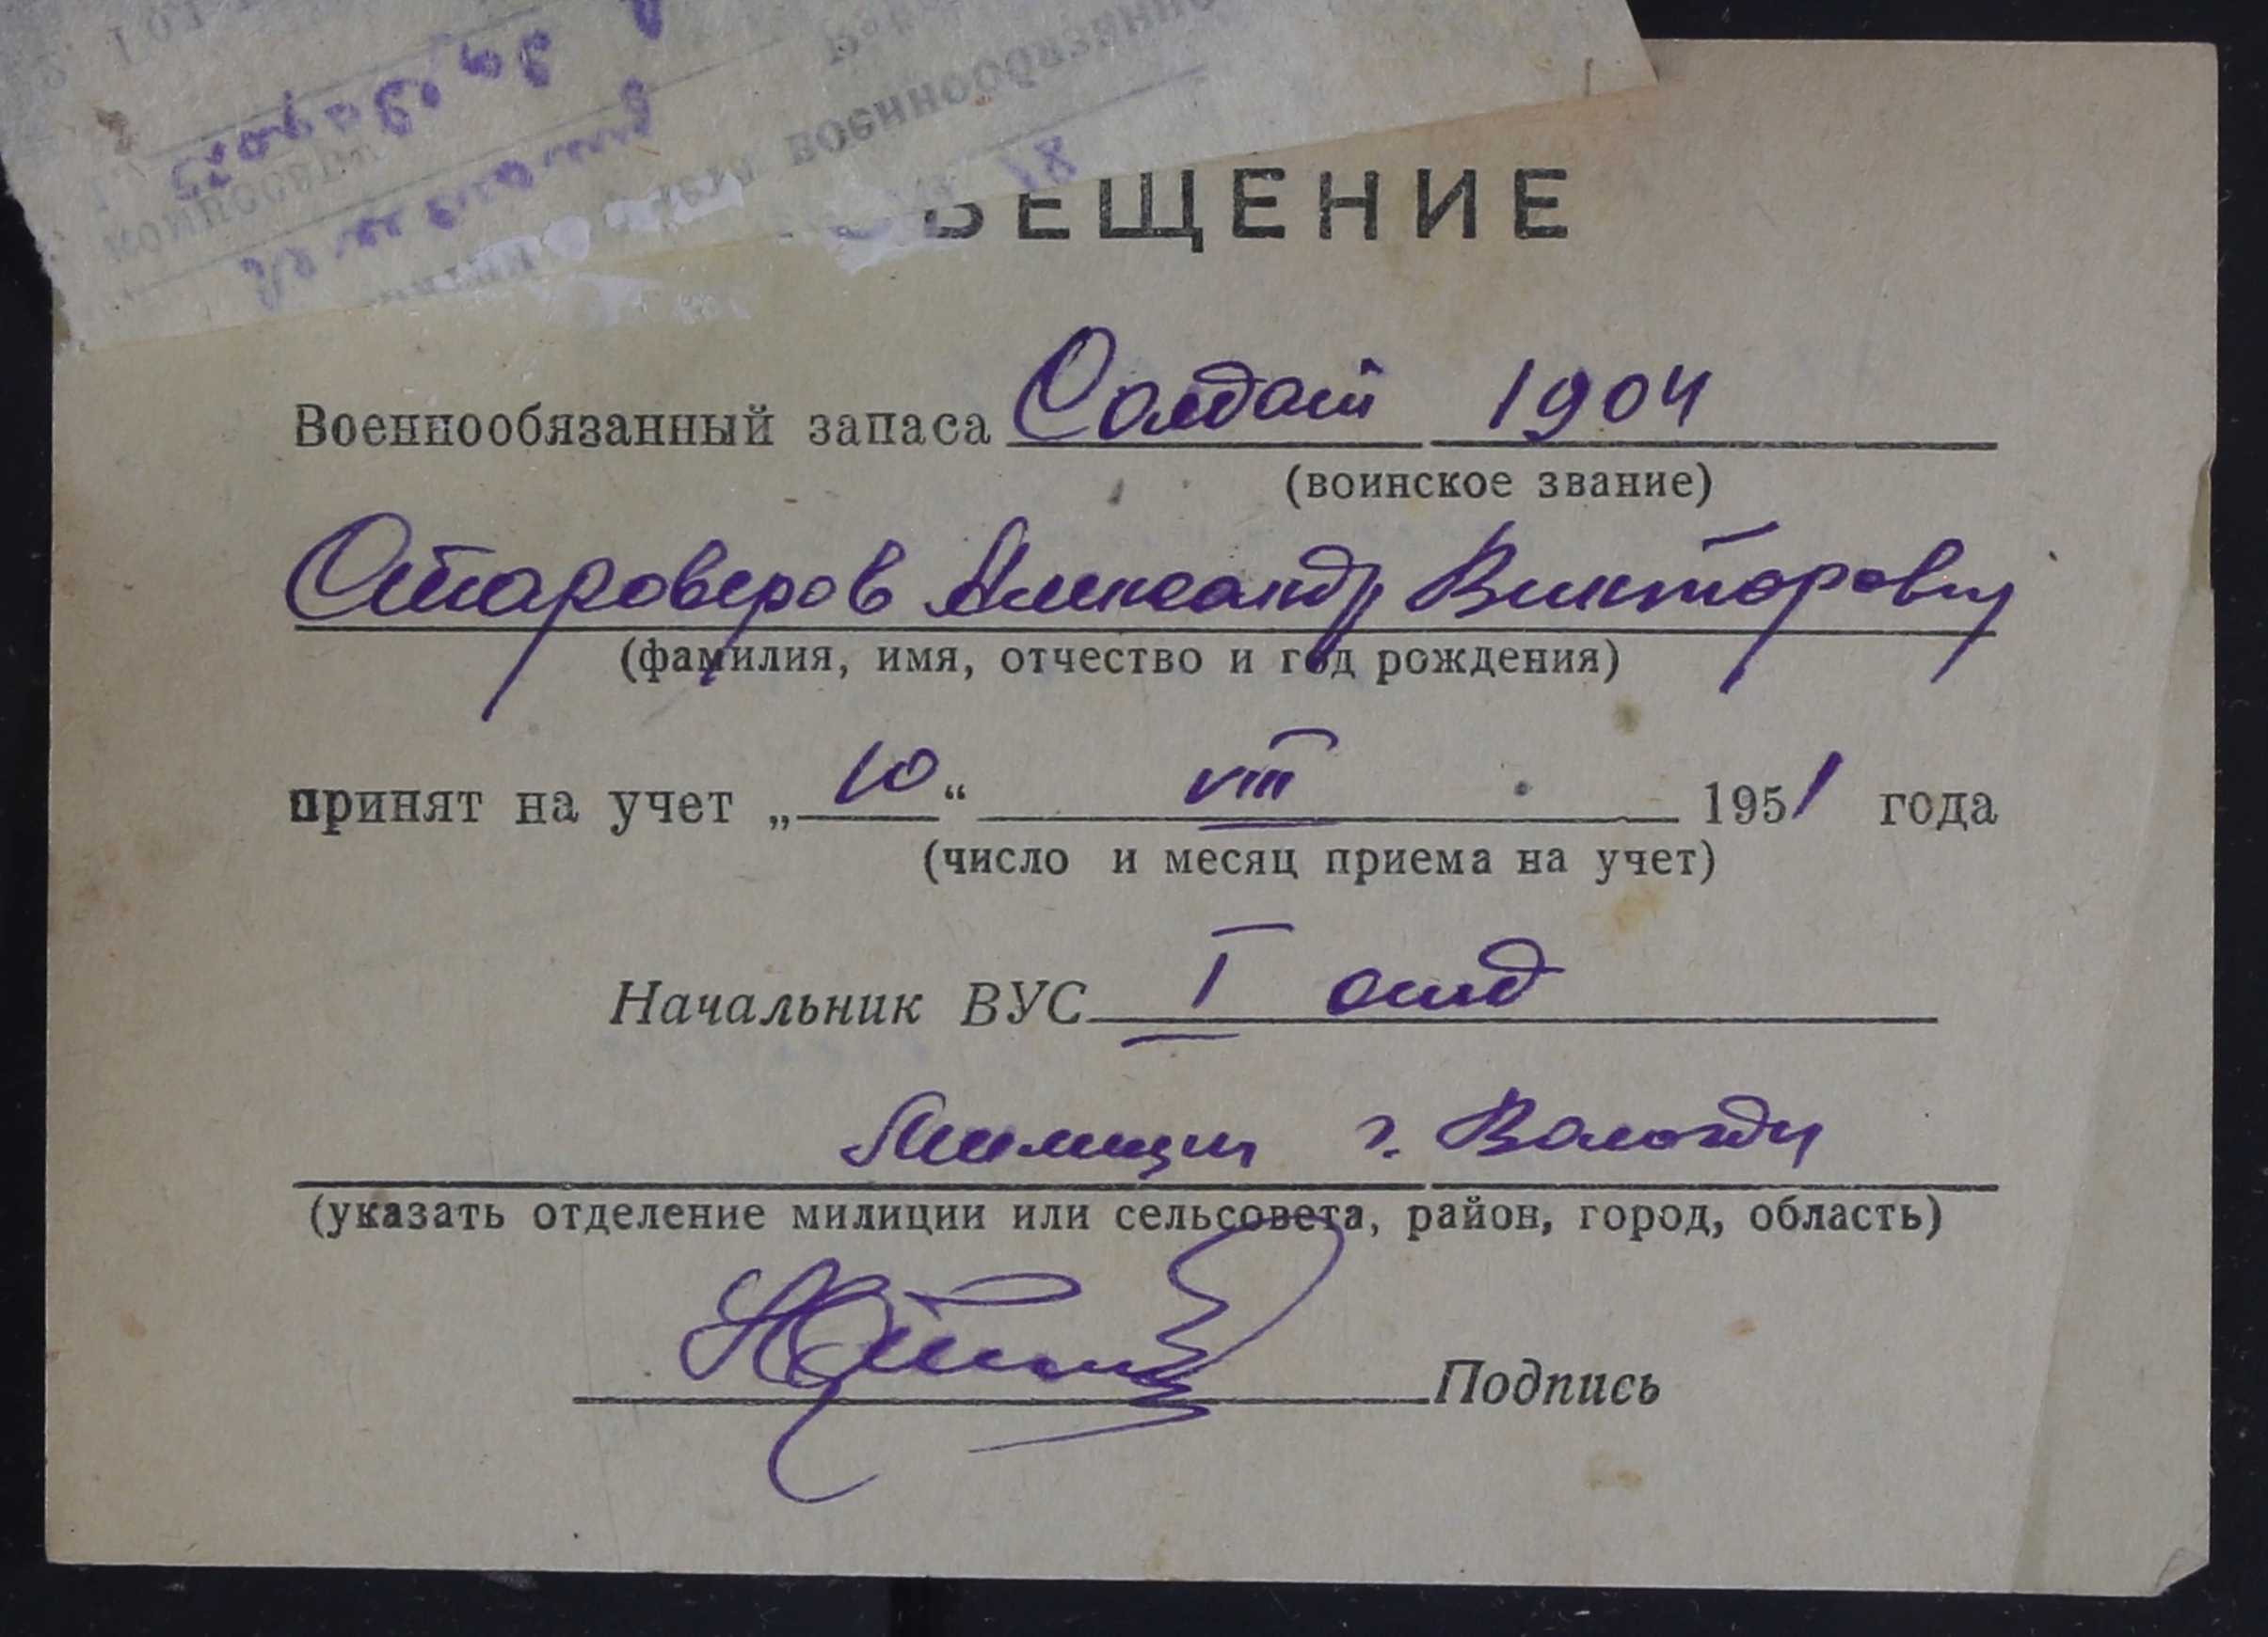 ВЕЩЕНИЕ
Военнообязанный запаса Солдат 1904
(воинское звание)
Староверов Александр Викторович
(фамилия, имя, отчество и год рождения)
принят на учет „10“ VIII 1951 года
(число и месяц приема на учет)
Начальник ВУС I отд
Милиции г. Вологды
(указать отделение милиции или сельсовета, район, город, область)
Подпись